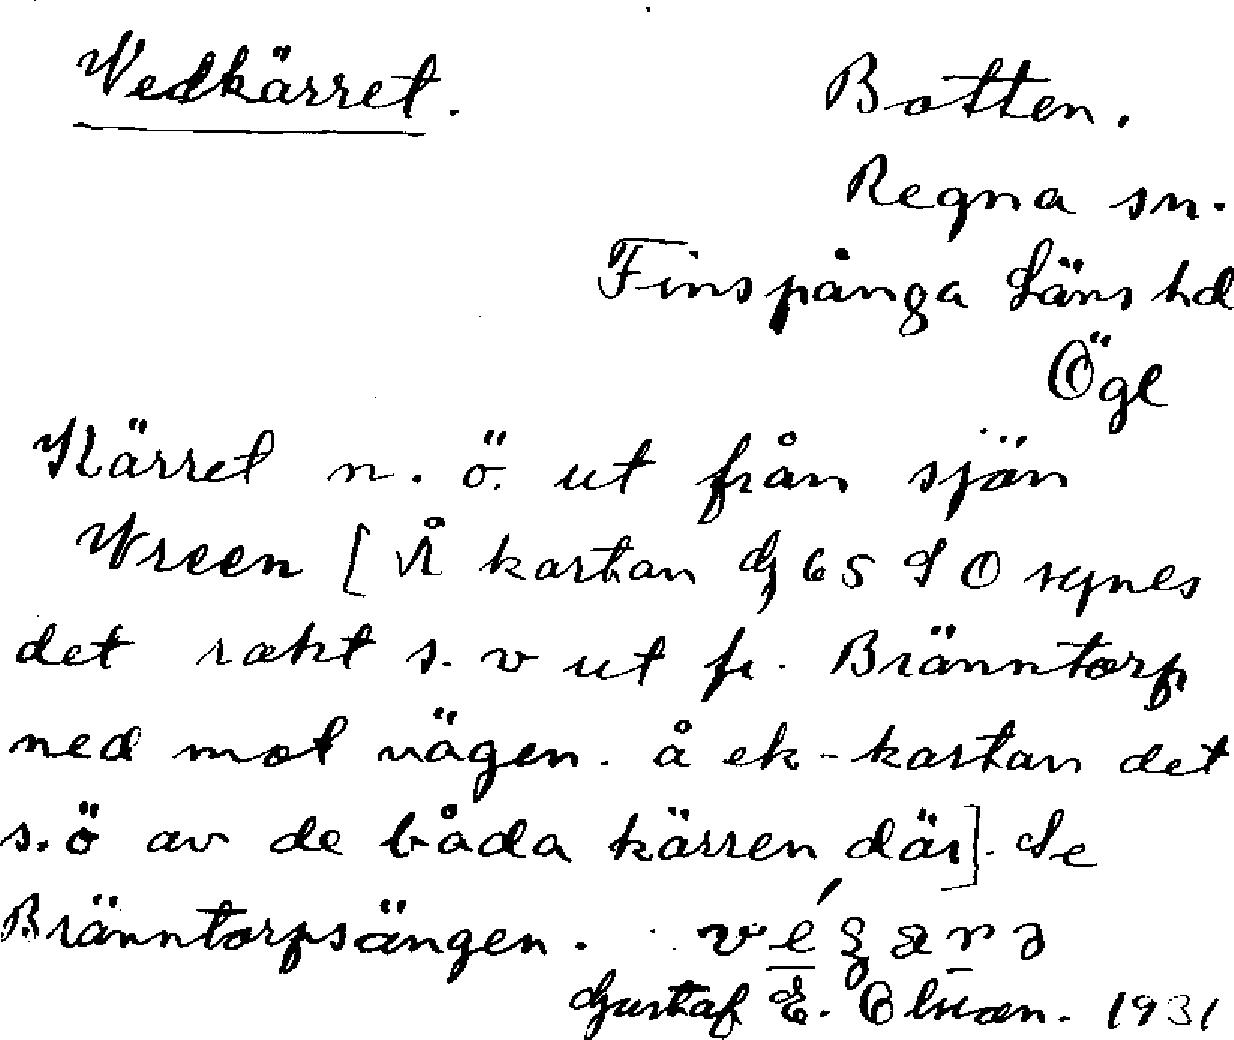 Vedkärret.
Botten.
Regna sn.
Finspånga Läns hd
Ögl
Kärret n. ö. ut från sjön
Vreen [Å kartan G 65 S O synes
det rakt s. v ut fr. Bränntorp
ned mot vägen. å ek-kartan det
s.ö av de båda kärren där]. Se
Bränntorpsängen.
Gustaf E. 1931